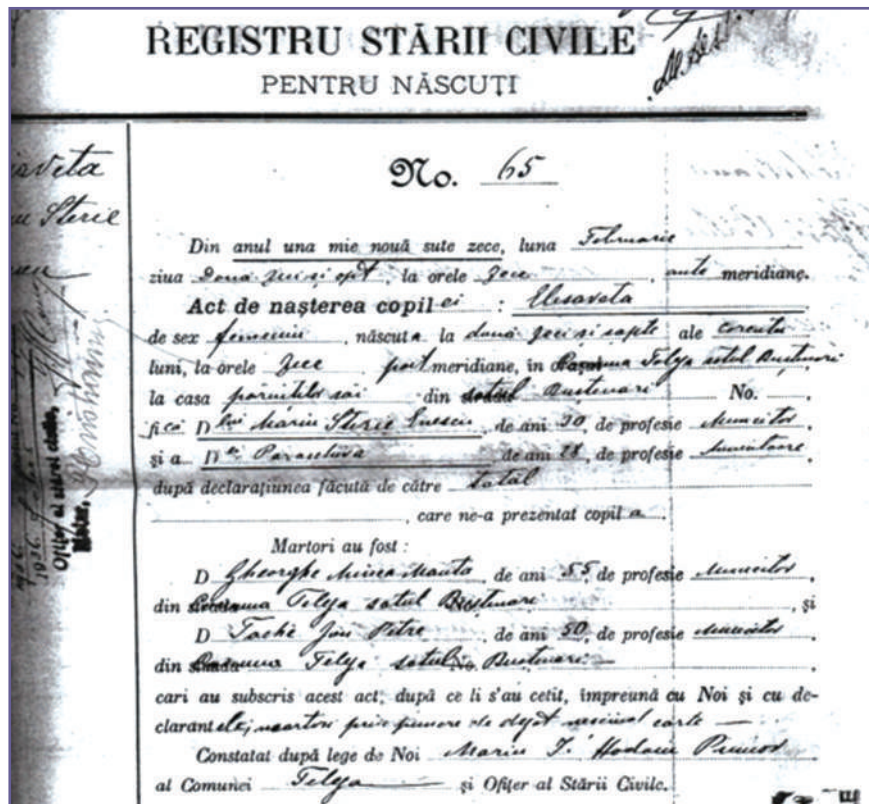 REGISTRU STĂRII CIVILE
PENTRU NĂSCUȚI
No. 65
Din anul una mie nouă sute zece, luna Februarie
ziua Doua zeci și opt, la orele zece, ante meridiane.
Act de nașterea copilei : Elisaveta
de sex femenin, născuta la două zeci si sapte ale corentu
luni, la orele zece post meridiane, în Comuna Telega satul Bustenari
la casa parintilor sai din satul Bustenari No.
fiică Dlui Marin Sterie Enescu, de ani 30, de profesie Muncitor
și a Dei Paraschiva de ani 28, de profesie Muncitoare
după declarațiunea făcută de către tatăl
, care ne-a prezentat copila.
Martori au fost :
D Gheorghe Mincea Manta, de ani 55, de profesie Muncitor,
din Comuna Telega satul Bustenari, și
D Tache Ion Petre, de ani 50, de profesie Muncitor,
din Comuna Telega satul Bustenari
cari au subscris acest act, după ce li s'au cetit, împreună cu Noi și cu de-
clarantele, martori prin punere de deget nesciind carte
Constatat după lege de Noi Marin I. Hodoiu Primar
al Comunei Telega și Ofițer al Stării Civile.
isaveta
Sterie
1936
Ofițer al stărei civile,
Notar,